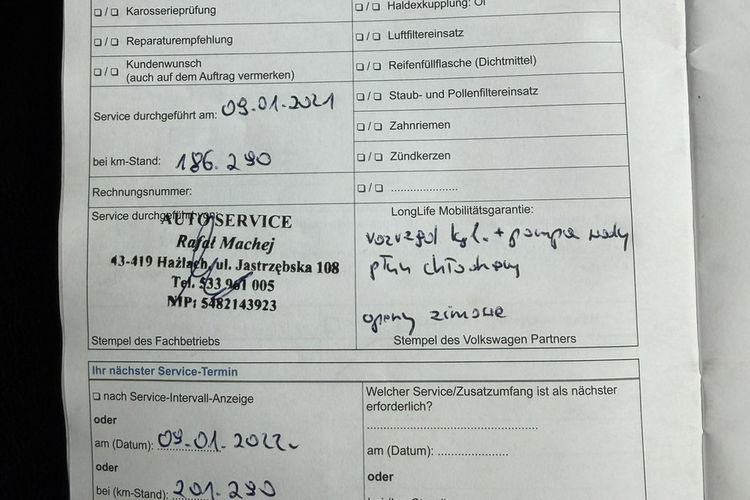 ☐ / ☐ Karosserieprüfung
☐ / ☐ Reparaturempfehlung
☐ / ☐ Kundenwunsch
(auch auf dem Auftrag vermerken)
Service durchgeführt am: 09.01.2021
bei km-Stand: 186.290
Rechnungsnummer:
Service durchgeführt von:
AUTO SERVICE
Rafał Machej
43-419 Hażlach, ul. Jastrzębska 108
Tel. 533 961 005
NIP: 5482143923
Stempel des Fachbetriebs
☐ / ☐ Haldexkupplung: Öl
☐ / ☐ Luftfiltereinsatz
☐ / ☐ Reifenfüllflasche (Dichtmittel)
☐ / ☐ Staub- und Pollenfiltereinsatz
☐ / ☐ Zahnriemen
☐ / ☐ Zündkerzen
☐ / ☐ .....................
LongLife Mobilitätsgarantie:
rozrząd kpl. + pompa wody
płyn chłodniczy
opony zimowe
Stempel des Volkswagen Partners
Ihr nächster Service-Termin
☐ nach Service-Intervall-Anzeige
oder
am (Datum): 09.01.2022
oder
bei (km-Stand): 201.290
Welcher Service/Zusatzumfang ist als nächster
erforderlich?
am (Datum): .....................
oder